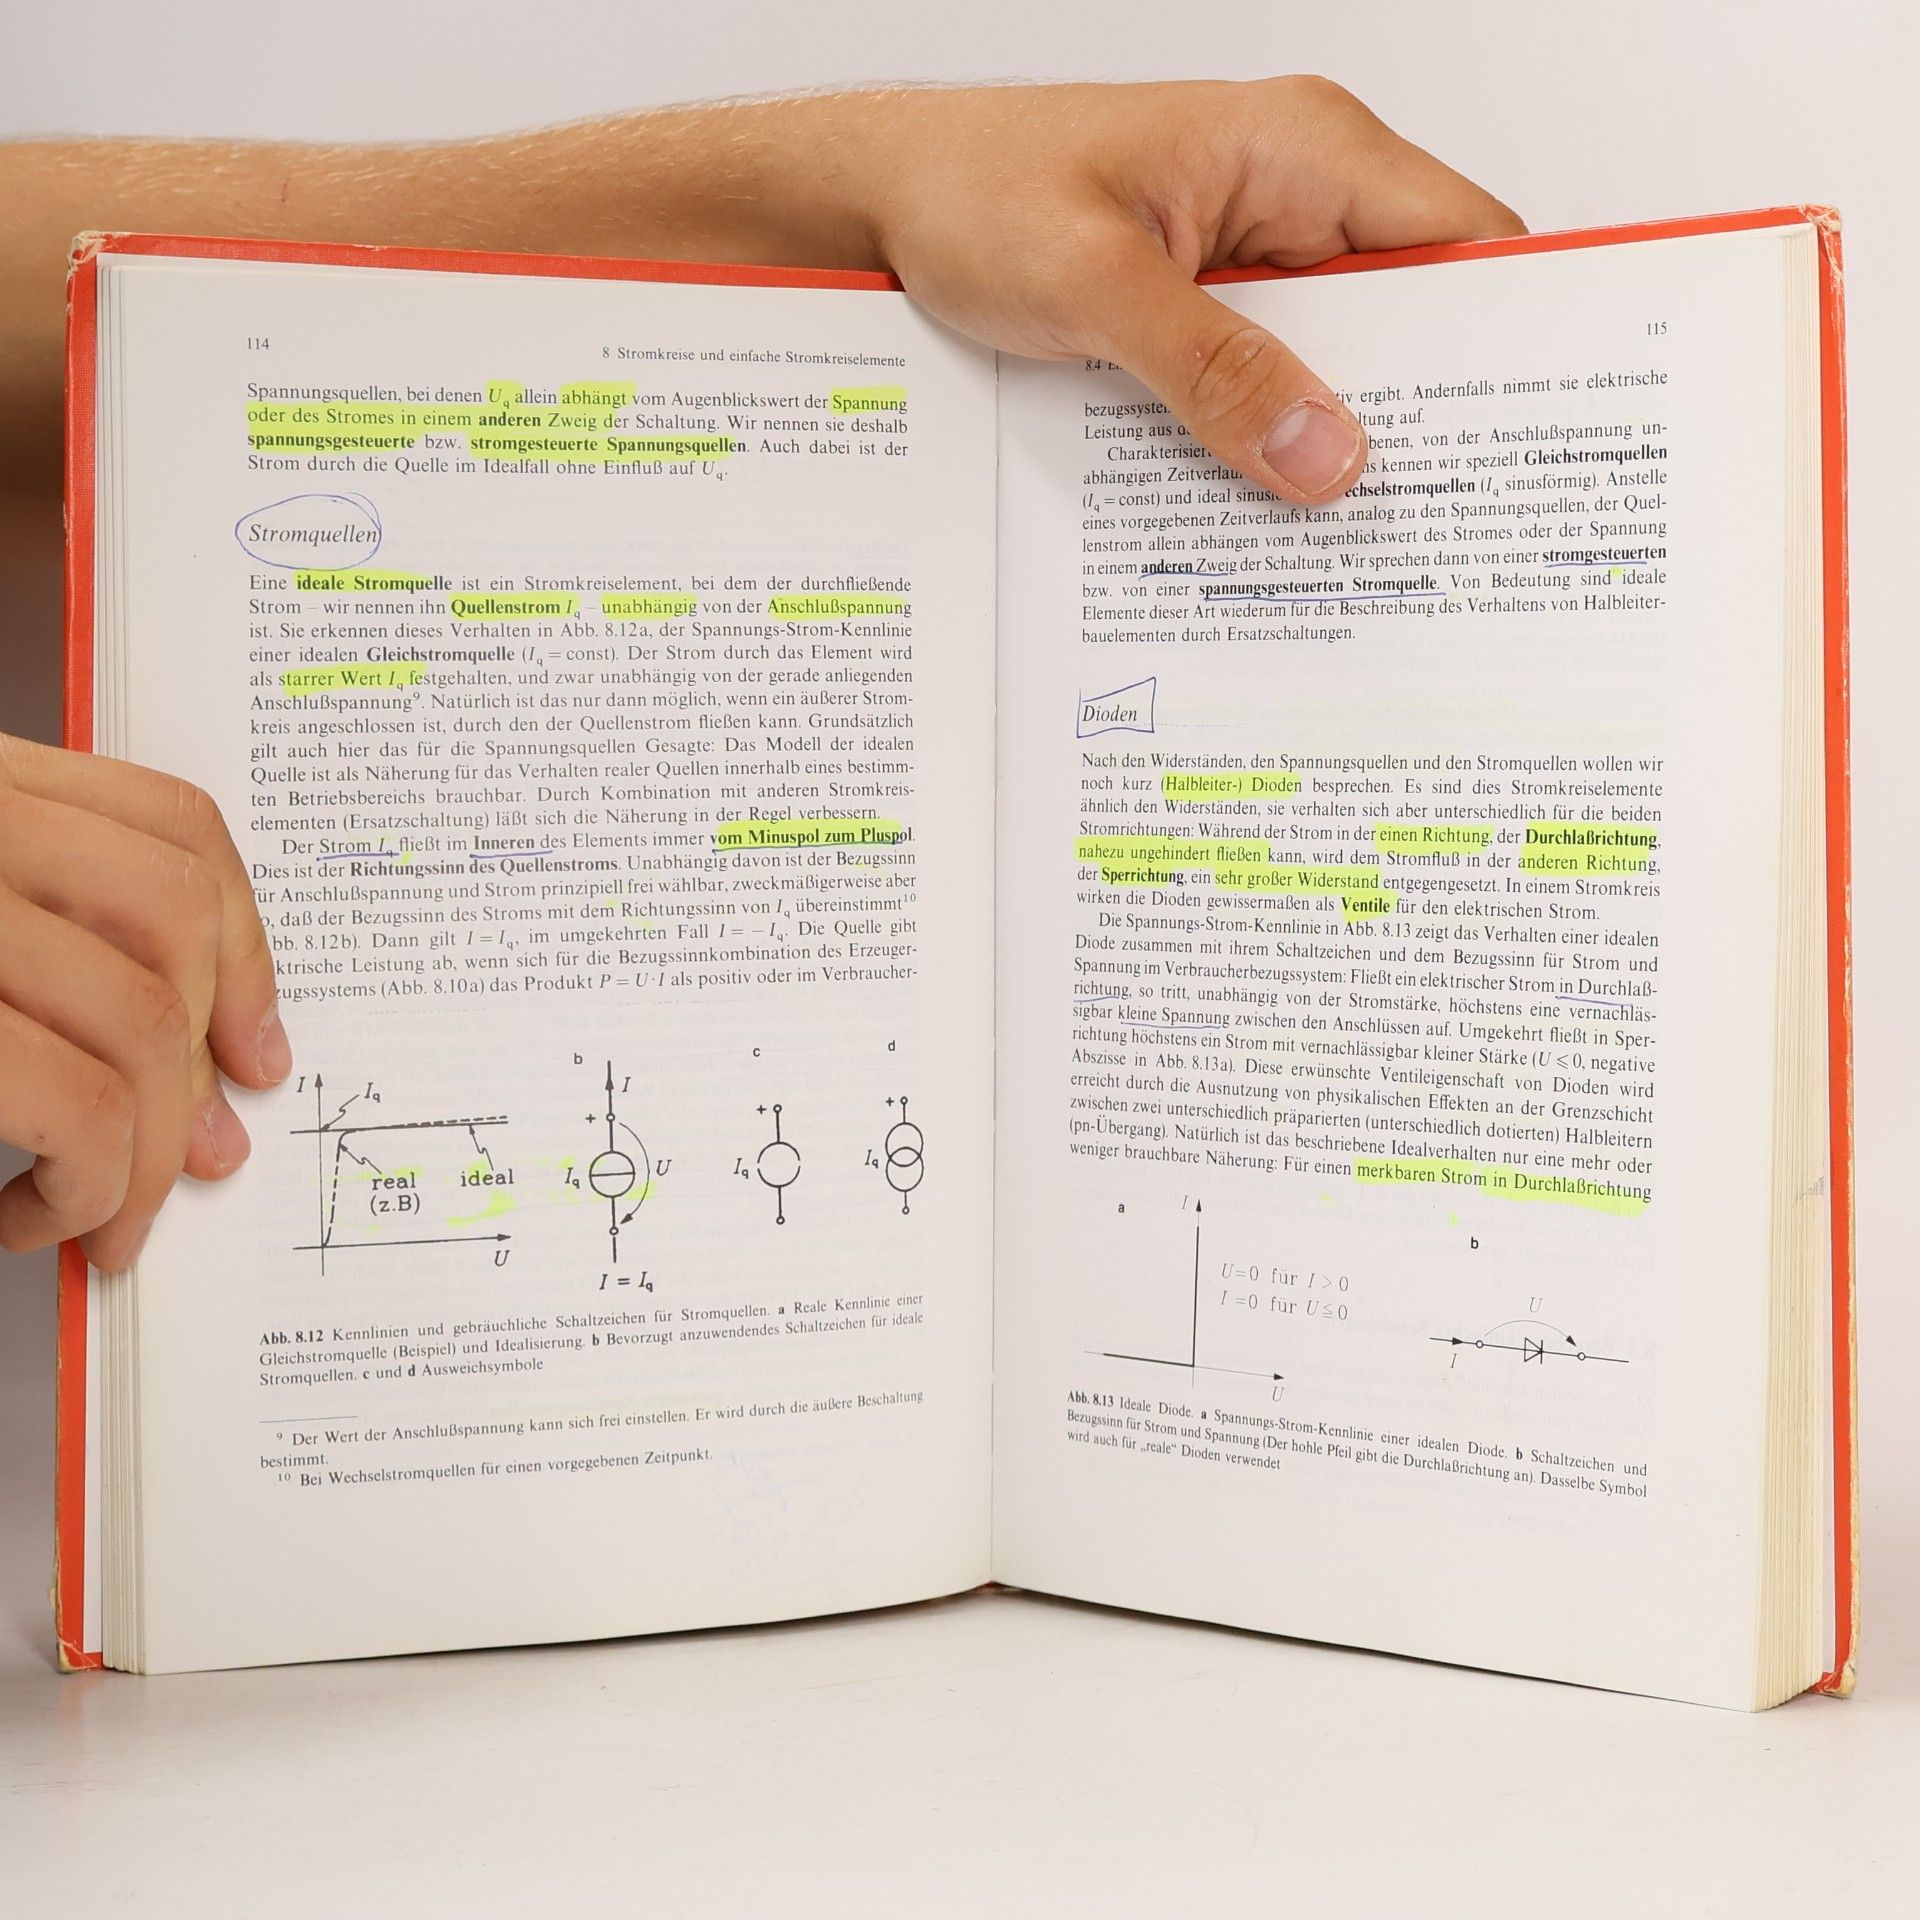 114
8 Stromkreise und einfache Stromkreiselemente
Spannungsquellen, bei denen Uq allein abhängt vom Augenblickswert der Spannung
oder des Stromes in einem anderen Zweig der Schaltung. Wir nennen sie deshalb
spannungsgesteuerte bzw. stromgesteuerte Spannungsquellen. Auch dabei ist der
Strom durch die Quelle im Idealfall ohne Einfluß auf Uq.
Stromquellen
Eine ideale Stromquelle ist ein Stromkreiselement, bei dem der durchfließende
Strom – wir nennen ihn Quellenstrom Iq – unabhängig von der Anschlußspannung
ist. Sie erkennen dieses Verhalten in Abb. 8.12a, der Spannungs-Strom-Kennlinie
einer idealen Gleichstromquelle (Iq = const). Der Strom durch das Element wird
als starrer Wert Iq festgehalten, und zwar unabhängig von der gerade anliegenden
Anschlußspannung⁹. Natürlich ist das nur dann möglich, wenn ein äußerer Strom-
kreis angeschlossen ist, durch den der Quellenstrom fließen kann. Grundsätzlich
gilt auch hier das für die Spannungsquellen Gesagte: Das Modell der idealen
Quelle ist als Näherung für das Verhalten realer Quellen innerhalb eines bestimm-
ten Betriebsbereichs brauchbar. Durch Kombination mit anderen Stromkreis-
elementen (Ersatzschaltung) läßt sich die Näherung in der Regel verbessern.
Der Strom Iq fließt im Inneren des Elements immer vom Minuspol zum Pluspol.
Dies ist der Richtungssinn des Quellenstroms. Unabhängig davon ist der Bezugssinn
für Anschlußspannung und Strom prinzipiell frei wählbar, zweckmäßigerweise aber
o, daß der Bezugssinn des Stroms mit dem Richtungssinn von Iq übereinstimmt¹⁰
bb. 8.12b). Dann gilt I = Iq, im umgekehrten Fall I = − Iq. Die Quelle gibt
ktrische Leistung ab, wenn sich für die Bezugssinnkombination des Erzeuger-
zugssystems (Abb. 8.10a) das Produkt P = U · I als positiv oder im Verbraucher-
b
c
d
I
Iq
real
(z.B)
ideal
U
I
+
Iq
U
I = Iq
+
Iq
+
Iq
Abb. 8.12 Kennlinien und gebräuchliche Schaltzeichen für Stromquellen. a Reale Kennlinie einer
Gleichstromquelle (Beispiel) und Idealisierung. b Bevorzugt anzuwendendes Schaltzeichen für ideale
Stromquellen. c und d Ausweichsymbole
⁹ Der Wert der Anschlußspannung kann sich frei einstellen. Er wird durch die äußere Beschaltung
bestimmt.
¹⁰ Bei Wechselstromquellen für einen vorgegebenen Zeitpunkt.
8.4
115
bezugssyste iv ergibt. Andernfalls nimmt sie elektrische
Leistung aus ltung auf.
Charakterisier benen, von der Anschlußspannung un-
abhängigen Zeitverlau ns kennen wir speziell Gleichstromquellen
(Iq = const) und ideal sinus echselstromquellen (Iq sinusförmig). Anstelle
eines vorgegebenen Zeitverlaufs kann, analog zu den Spannungsquellen, der Quel-
lenstrom allein abhängen vom Augenblickswert des Stromes oder der Spannung
in einem anderen Zweig der Schaltung. Wir sprechen dann von einer stromgesteuerten
bzw. von einer spannungsgesteuerten Stromquelle. Von Bedeutung sind ideale
Elemente dieser Art wiederum für die Beschreibung des Verhaltens von Halbleiter-
bauelementen durch Ersatzschaltungen.
Dioden
Nach den Widerständen, den Spannungsquellen und den Stromquellen wollen wir
noch kurz (Halbleiter-) Dioden besprechen. Es sind dies Stromkreiselemente
ähnlich den Widerständen, sie verhalten sich aber unterschiedlich für die beiden
Stromrichtungen: Während der Strom in der einen Richtung, der Durchlaßrichtung,
nahezu ungehindert fließen kann, wird dem Stromfluß in der anderen Richtung,
der Sperrichtung, ein sehr großer Widerstand entgegengesetzt. In einem Stromkreis
wirken die Dioden gewissermaßen als Ventile für den elektrischen Strom.
Die Spannungs-Strom-Kennlinie in Abb. 8.13 zeigt das Verhalten einer idealen
Diode zusammen mit ihrem Schaltzeichen und dem Bezugssinn für Strom und
Spannung im Verbraucherbezugssystem: Fließt ein elektrischer Strom in Durchlaß-
richtung, so tritt, unabhängig von der Stromstärke, höchstens eine vernachläs-
sigbar kleine Spannung zwischen den Anschlüssen auf. Umgekehrt fließt in Sper-
richtung höchstens ein Strom mit vernachlässigbar kleiner Stärke (U ⩽ 0, negative
Abszisse in Abb. 8.13a). Diese erwünschte Ventileigenschaft von Dioden wird
erreicht durch die Ausnutzung von physikalischen Effekten an der Grenzschicht
zwischen zwei unterschiedlich präparierten (unterschiedlich dotierten) Halbleitern
(pn-Übergang). Natürlich ist das beschriebene Idealverhalten nur eine mehr oder
weniger brauchbare Näherung: Für einen merkbaren Strom in Durchlaßrichtung
a
I
U=0 für I > 0
I =0 für U ≦ 0
U
b
U
I
Abb. 8.13 Ideale Diode. a Spannungs-Strom-Kennlinie einer idealen Diode. b Schaltzeichen und
Bezugssinn für Strom und Spannung (Der hohle Pfeil gibt die Durchlaßrichtung an). Dasselbe Symbol
wird auch für „reale“ Dioden verwendet